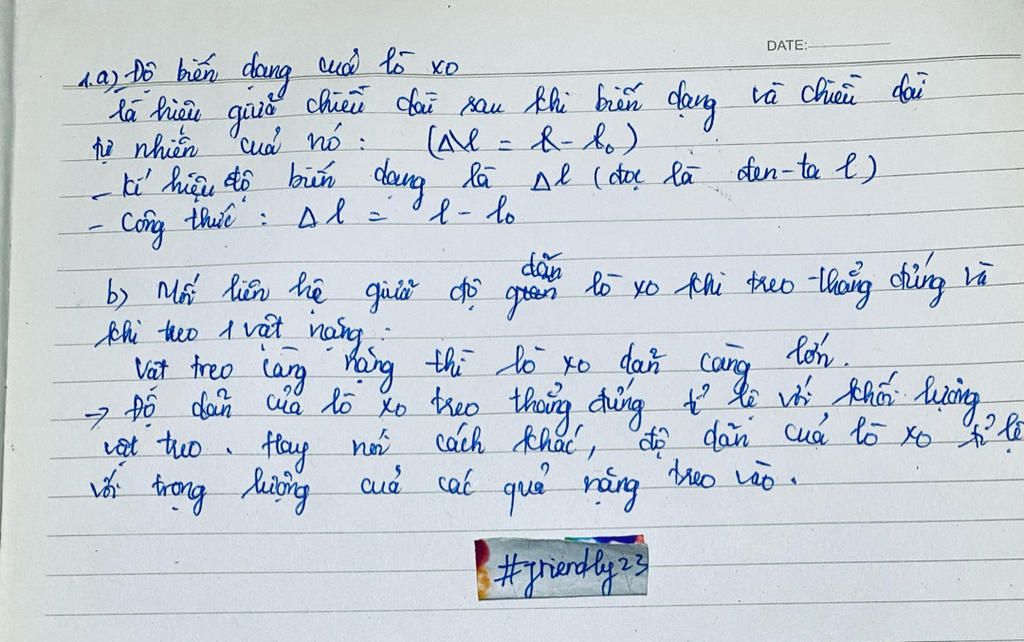 DATE:
1.a) Độ biến dạng của lò xo
là hiệu giữa chiều dài sau khi biến dạng và chiều dài
tự nhiên của nó : (Δl = l - l₀)
- Kí hiệu độ biến dạng là Δl (đọc là đen-ta l)
- Công thức : Δl = l - l₀
b) Mối liên hệ giữa độ dãn lò xo khi treo thẳng đứng và
khi treo 1 vật nặng :
Vật treo càng nặng thì lò xo dãn càng lớn.
→ Độ dãn của lò xo treo thẳng đứng tỉ lệ với khối lượng
vật treo. Hay nói cách khác, độ dãn của lò xo tỉ lệ
với trọng lượng của các quả nặng treo vào.
#friendly23